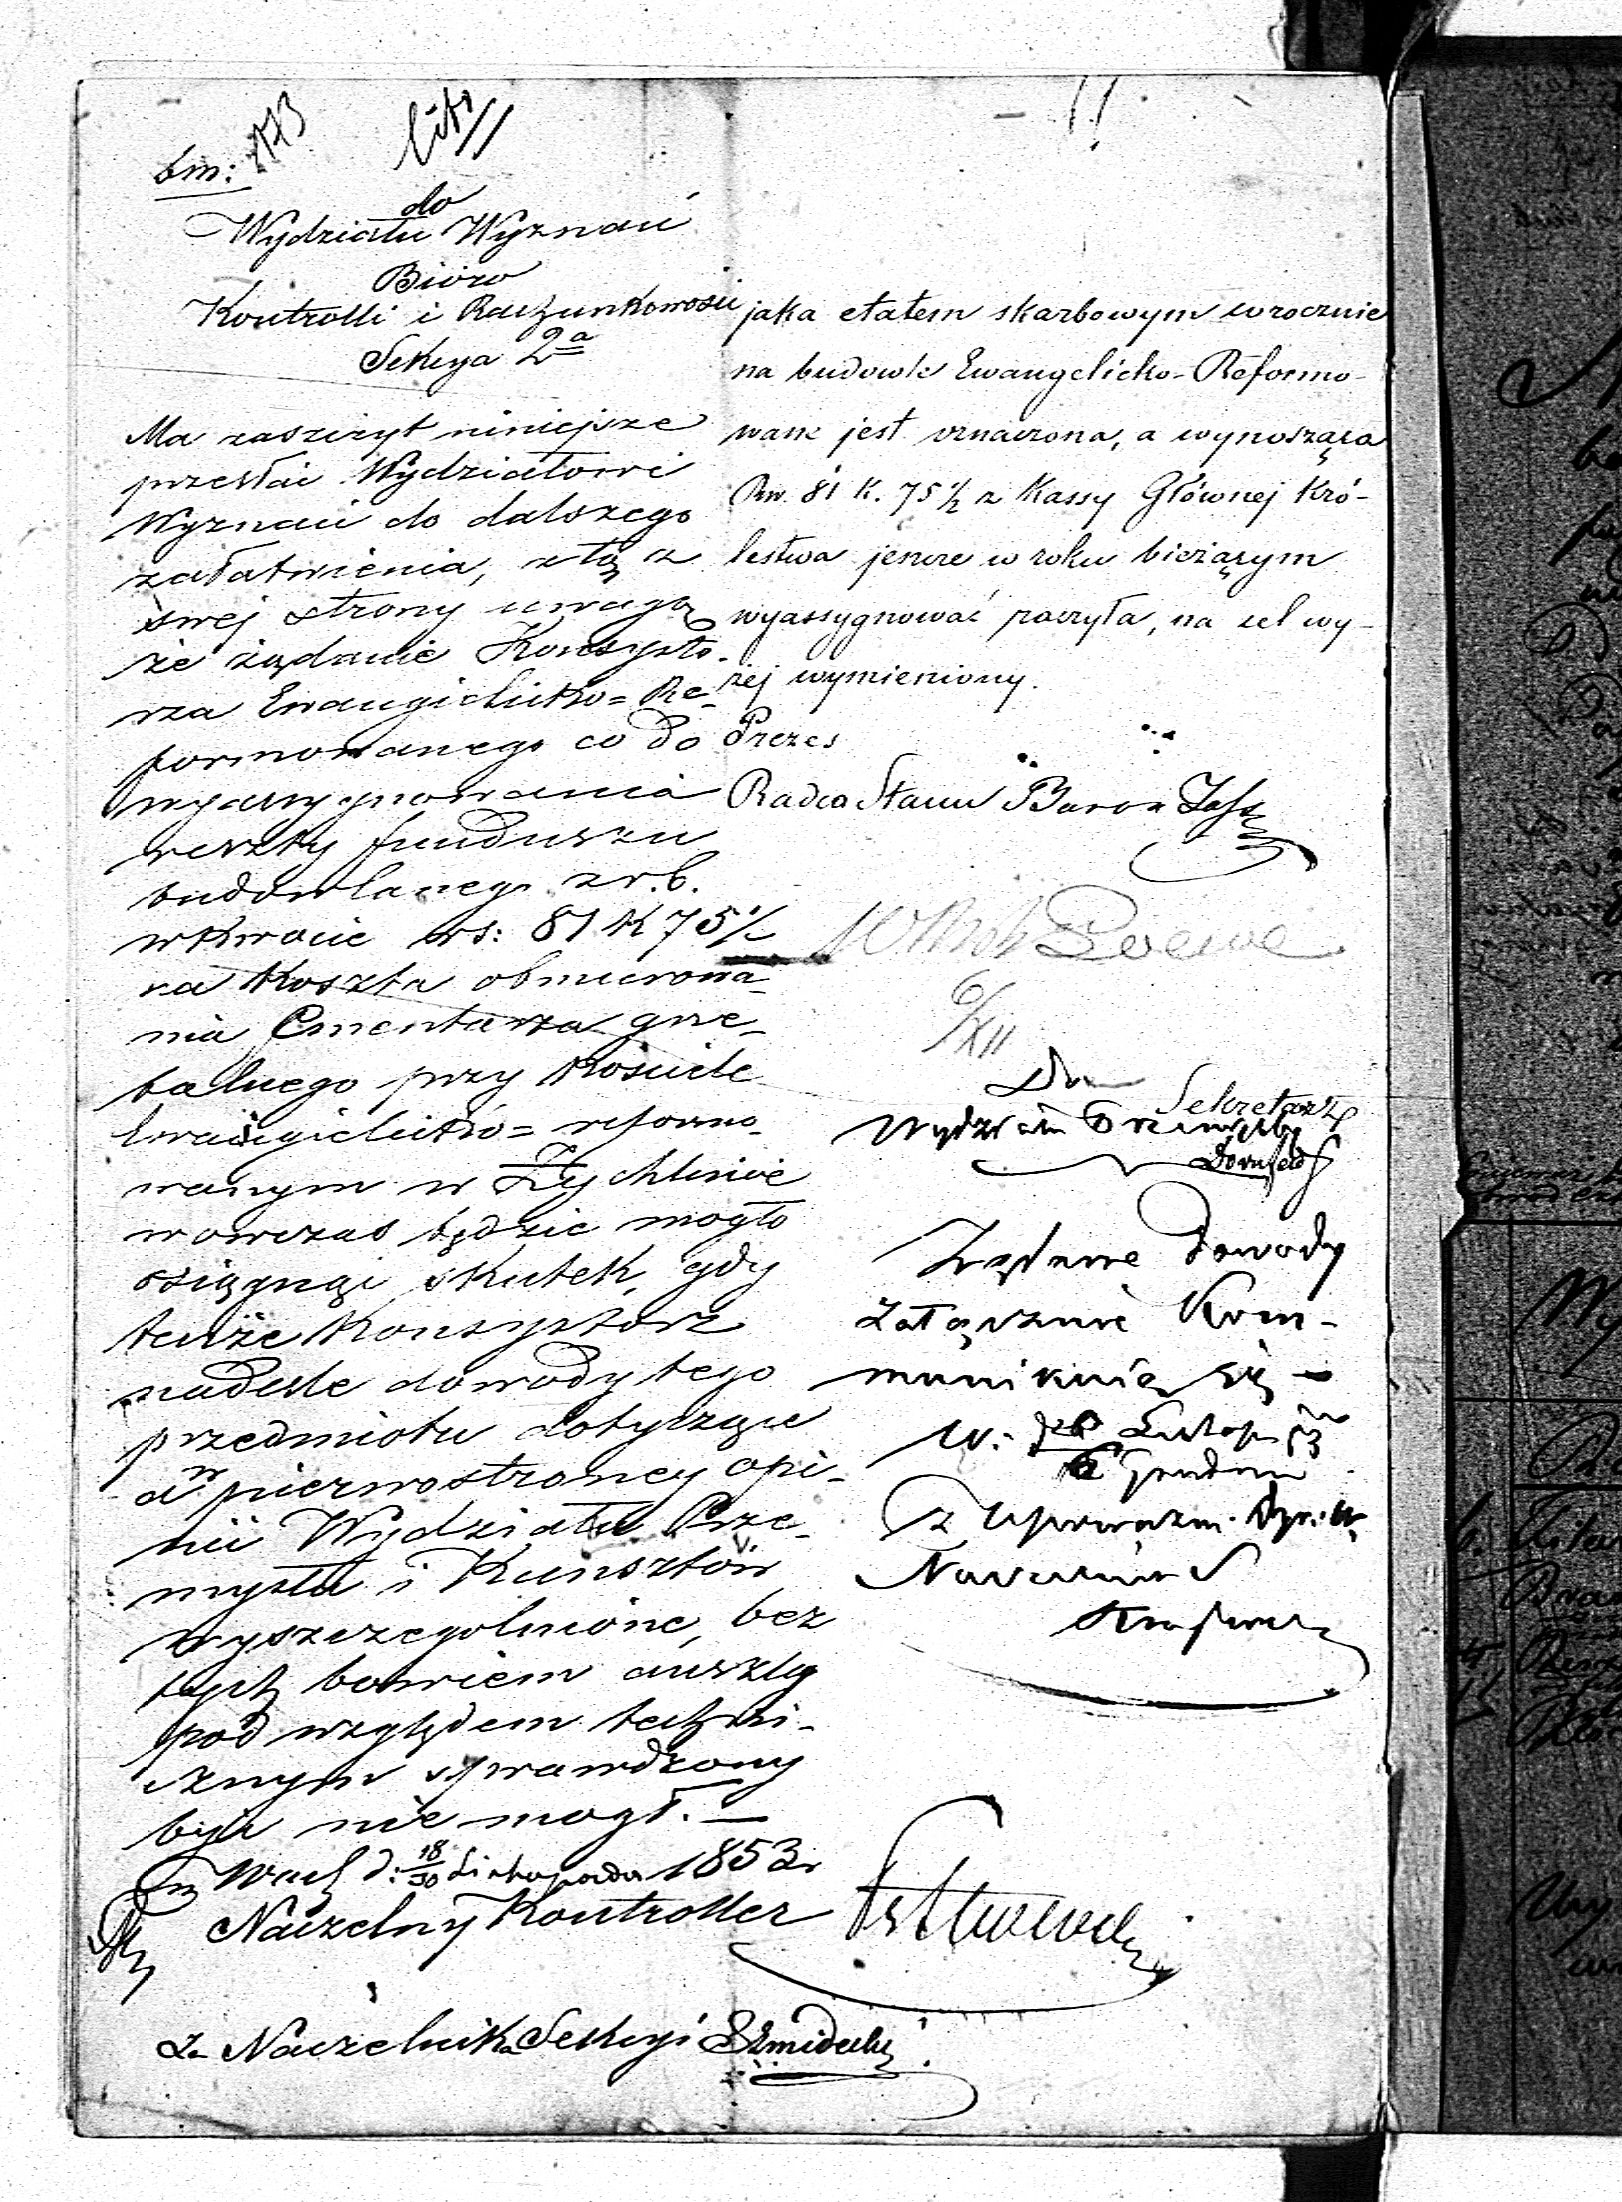 do
Wydziału Wyznań
Bióro
Kontrolli i Rachunkowości
Sekcya 2ª
Ma zaszczyt niniejsze
przesłać Wydziałowi
Wyznań do dalszego
załatwienia, z tą z
swej strony uwagą
że żądanie Konsysto-
rza Ewangielicko=Re-
formowanego co do
wyassygnowania
reszty funduszu
budowlanego z r. b.
w kwocie rs: 81 K 75½
na koszta obmurowa-
nia Cmentarza grze-
balnego przy Kościele
Ewangielicko=reformo-
wanym w Żychlinie
wowczas będzie mogło
osiągnąć skutek, gdy
tenże Konsystorz
nadeśle dowody tego
przedmiotu dotyczące
a w pierwostronney opi-
nii Wydziału Prze-
mysłu i Kunsztów
wyszczególnione, bez
tych bowiem anszlag
pod względem techni-
cznym sprawdzony
być nie mógł. —
w Warsz d: 18/30 Listopada 1853 r
Naczelny Kontroller
Za Naczelnika Sekcyi
jaka etatem skarbowym corocznie
na budowle Ewangelicko-Reformo-
wane jest oznaczona, a wynosząca
Rsr. 81 K. 75½ z Kassy Głównej Kró-
lestwa jeszcze w roku bieżącym
wyassygnować raczyła, na cel wy-
żej wymieniony.
Prezes
Radca Stanu Baron
6/XII
Do
Sekretarz
Wydziału Przemysłu
Żądane dowody
załącznie Kom-
munikuie się —
W. Listop 53
6 Grudnia
Z upoważn. Dyr. W.
Naczelnik